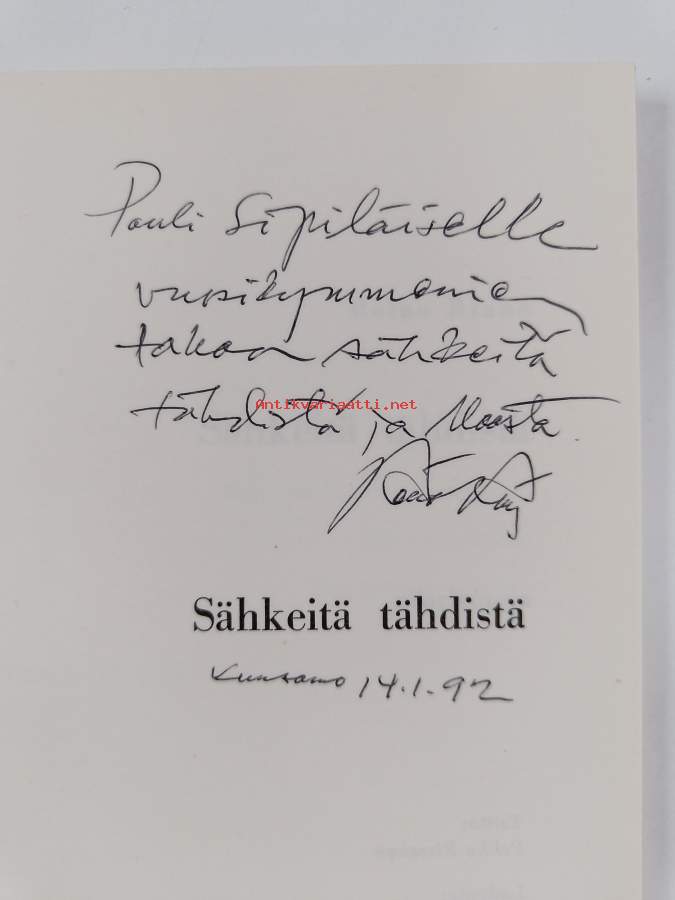 Pauli Sipiläiselle
vuosikymmenien
takaa sähkeitä
tähdistä ja Maasta
Antikvariaatti.net
Sähkeitä tähdistä
Kuusamo 14.1.92